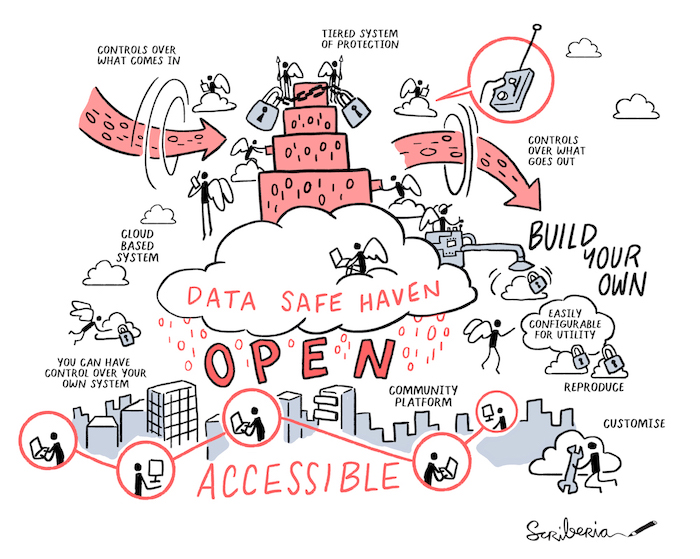 CONTROLS OVER
WHAT COMES IN
TIERED SYSTEM
OF PROTECTION
CONTROLS
OVER WHAT
GOES OUT
CLOUD
BASED
SYSTEM
BUILD
YOUR
OWN
DATA SAFE HAVEN
EASILY
CONFIGURABLE
FOR UTILITY
OPEN
YOU CAN HAVE
CONTROL OVER YOUR
OWN SYSTEM
REPRODUCE
COMMUNITY
PLATFORM
CUSTOMISE
ACCESSIBLE
Scriberia